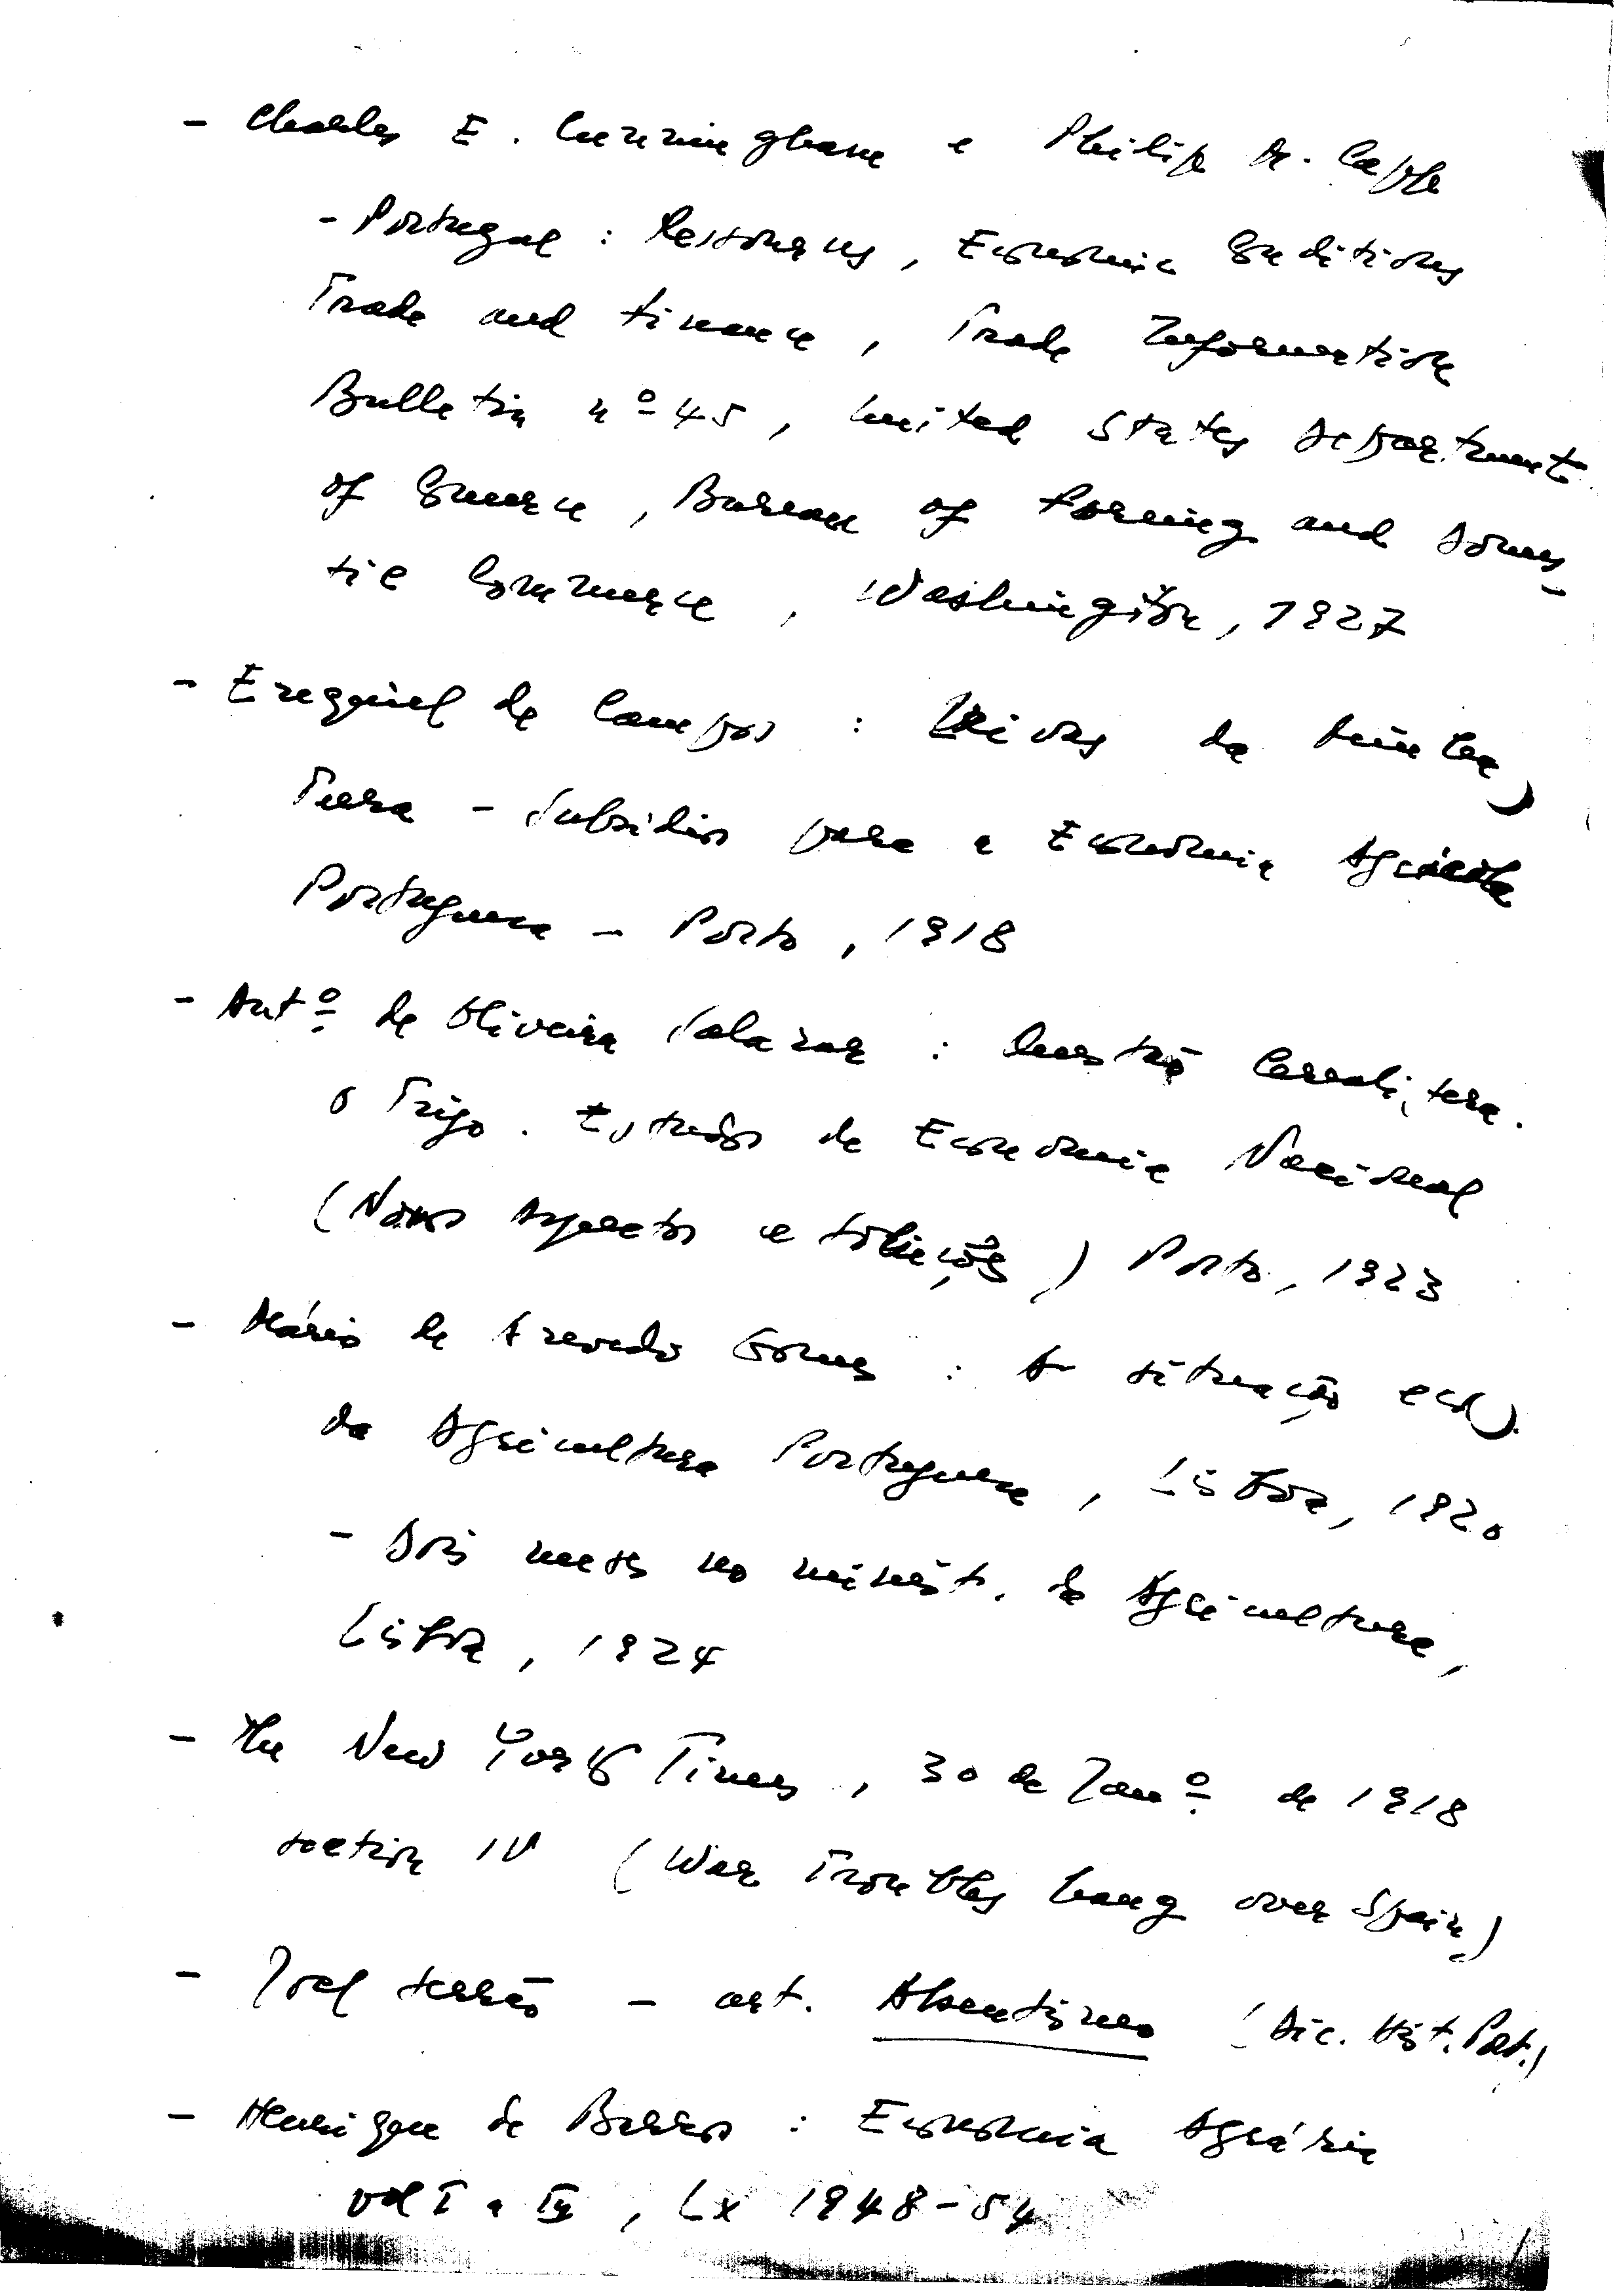 - Charles E. Cunningham e Philip M. Copp
- Portugal: Ressources, Economic Conditions
Trade and Finance, Trade Information
Bulletin nº 45, United States Department
of Commerce, Bureau of Foreing and Domes-
tic Commerce, Washington, 1927
- Ezequiel de Campos: Leivas da Minha
Terra - Subsidios para a Economia Agrícola
Portuguesa - Porto, 1918
- Antº de Oliveira Salazar: Questão Cerealífera.
O Trigo. Estudos de Economia Nacional
(Novos Aspectos e soluções) Porto, 1923
- Mário de Azevedo Gomes: A situação eco.
da Agricultura Portuguesa, Lisboa, 1920
- Dois meses no minist. da Agricultura,
Lisboa, 1924
- The New York Times, 30 de Janº de 1918
section IV (War Troubles hang over Spain)
- Joel Serrão - art. Absentismo (Dic. Hist. Port.)
- Henrique de Barros: Economia Agrária
vol I a IV, Lx 1948-54